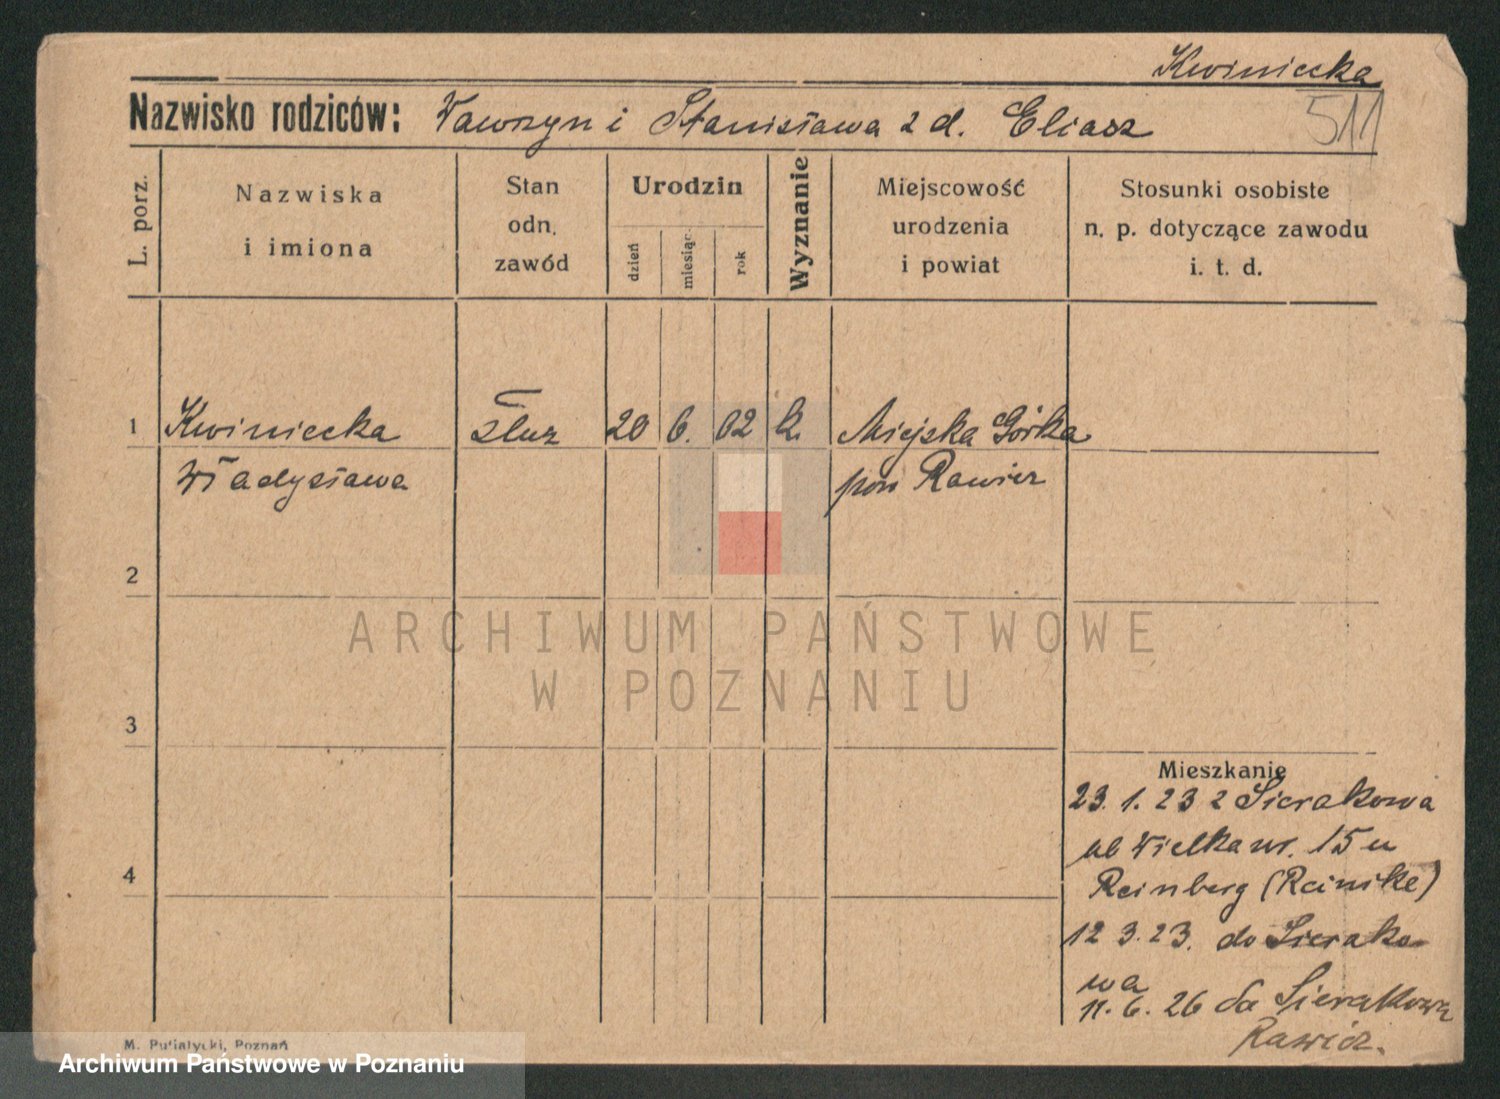 Kwiniecka
Nazwisko rodziców: Wawrzyn i Stanisława z d. Eliasz
511
L. porz.
Nazwiska
i imiona
Stan
odn.
zawód
Urodzin
dzień
miesiąc
rok
Wyznanie
Miejscowość
urodzenia
i powiat
Stosunki osobiste
n. p. dotyczące zawodu
i. t. d.
1 Kwiniecka służ 20 6. 02 k. Miejska Górka
Władysława pow Rawicz
2
ARCHIWUM PAŃSTWOWE
W POZNANIU
3
Mieszkanie
23. 1. 23 z Sierakowa
ul Wielka nr. 15 u
4
Reinberg (Reinike)
12 3. 23. do Sierako
wa
11. 6. 26 do Sierakowa
Rawicz.
M. Putiatycki, Poznań
Archiwum Państwowe w Poznaniu